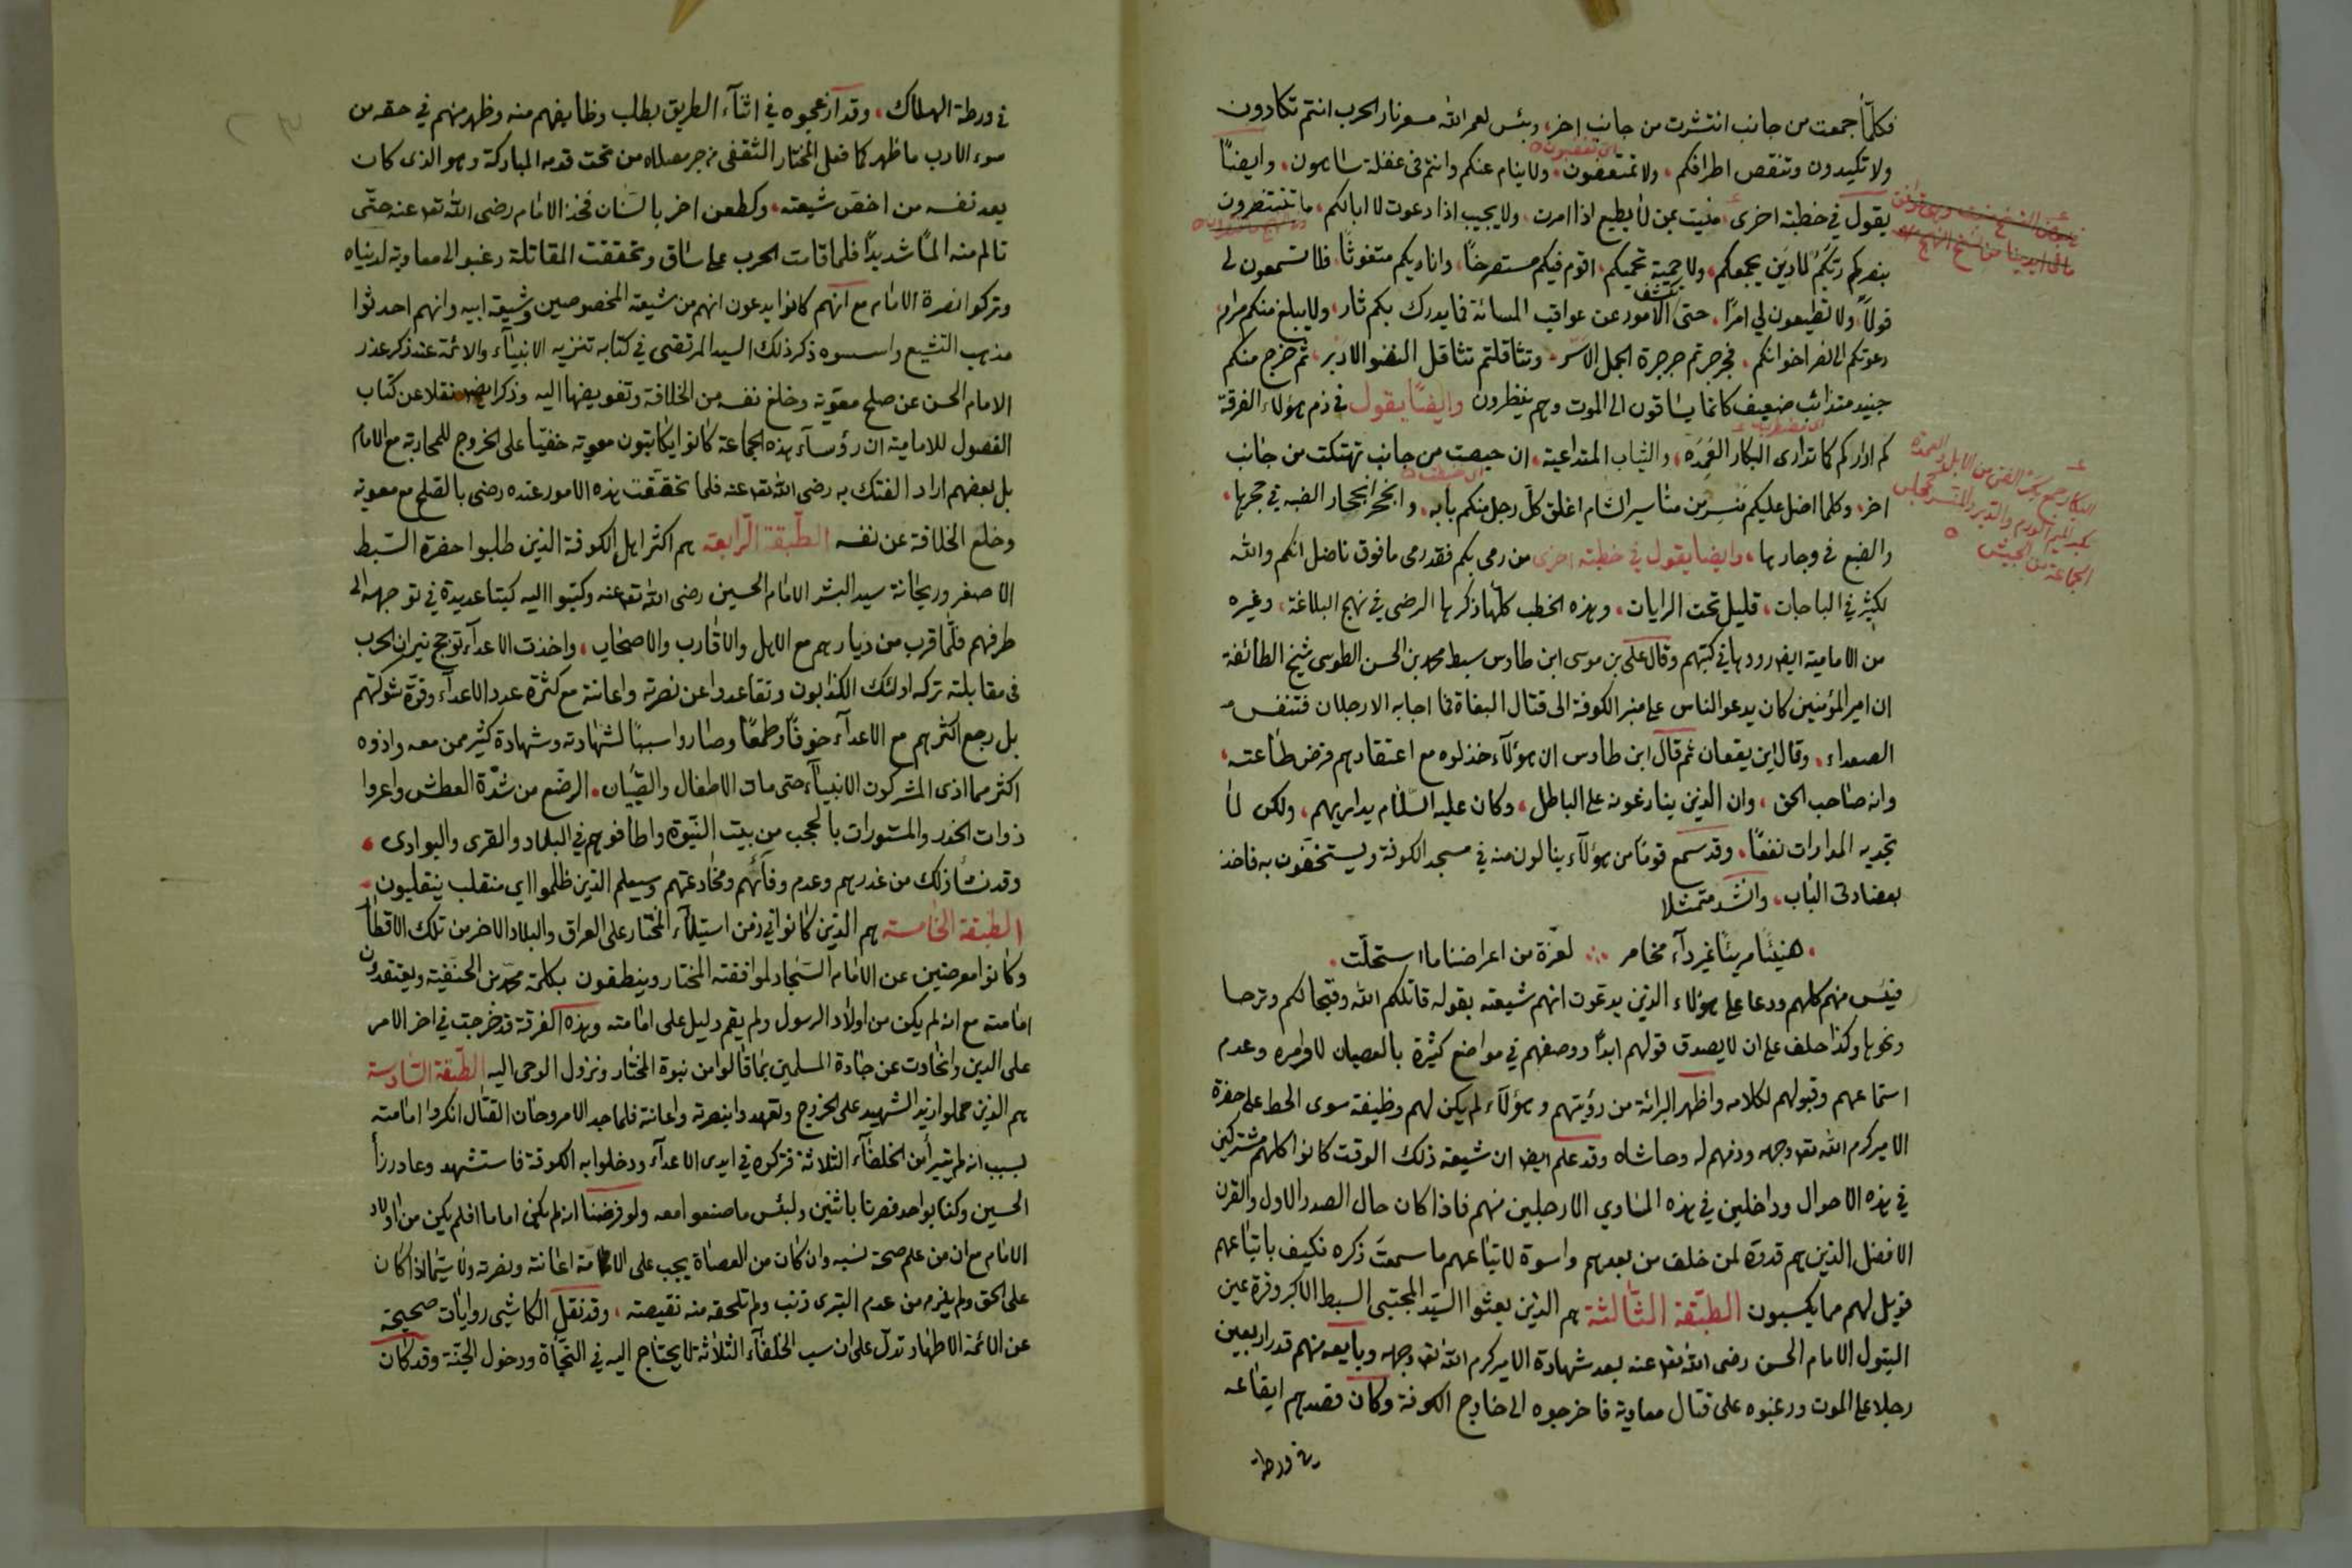 فكلّما جمعت من جانب انتشرت من جانب اخر، وبئس لعمر الله سعر نار الحرب انتم تكادون
ولا تكيدون وتنقص اطرافكم، ولا تمتعضون، ولا ينام عنكم وانتم في غفلة ساهون، وايضًا
اى تغضبون
يقول في خطبته اخرى، منيت بمن لا يطيع اذا امرت، ولا يجيب اذا دعوت لا ابا لكم، ما تنتظرون
بنصركم ربّكم لا دين يجمعكم، ولا حمية تحميكم، اقوم فيكم مستصرخًا، واناديكم متغوثًا، فلا تسمعون لى
قولًا، ولا تطيعون لي امرًا، حتى تكشف الامور عن عواقب المسائة فما يدرك بكم ثار، ولا يبلغ منكم مرام
دعوتكم الى نصر اخوانكم، فجرجرتم جرجرة الجمل الاسّر، وتثاقلتم تثاقل النضو الادبر، ثم خرج منكم
جنيد متذائب ضعيف كانما يساقون الى الموت وهم ينظرون وايضًا يقول في ذم هؤلاء الفرقة
كم اداركم كما تدارى البكار العَمِدَة، والثياب المتداعية، ان حيصت من جانب تهتكت من جانب
اخر، وكلما اضل عليكم مَنسِر من مناسير الشام اغلق كلّ رجل منكم بابه، وانجحر انجحار الضبه في حجرها،
والضبع في وجارها، وايضا يقول في خطبته اخرى من رمى بكم فقد رمى ما فوق ناضل انكم والله
لكثير في الباحات، قليل تحت الرايات، وهذه الخطب كلّها ذكرها الرضى في نهج البلاغة، وغيره
من الامامية ايضا رووها في كتبهم وقال على بن موسى ابن طاوس سبط محمد بن الحسن الطوسى شيخ الطائفة
ان امير المؤمنين كان يدعو الناس على منبر الكوفة الى قتال البغاة فما اجابه الا رجلان فتنفس
الصعداء، وقال اين يقعان ثم قال ابن طاوس ان هؤلآء خذلوه مع اعتقادهم فرض طاعته،
وانه صاحب الحق، وان الذين ينازعونه على الباطل، وكان عليه السّلام يداريهم، ولكن لا
تجديه المدارات نفعًا، وقد سمع قومًا من هؤلآء ينالون منه في مسجد الكوفة ويستخفّون به فاخذ
بعضادتى الباب، وانشد متمثلا
هنيئًا مريئًا غير دآء مخامر ∴ لعزة من اعراضنا ما استحلّت
فيئس منهم كلهم ودعا على هؤلاء الذين يدعون انهم شيعته بقوله قاتلكم الله وقبحا لكم وترحا
ونحوها وكذا حلف على ان لا يصدق قولهم ابدًا ووصفهم في مواضع كثيرة بالعصيان لاوامره وعدم
استماعهم وقبولهم لكلامه واظهر البرائة من رؤيتهم وهؤلآء لم يكن لهم وظيفة سوى الحط على حضرة
الامير كرم الله تعه وجهه وذمهم له وحاشاه وقد علم ايضا ان شيعة ذلك الوقت كانوا كلهم مشتركين
في هذه الاحوال وداخلين في هذه المساوي الا رجلين منهم فاذا كان حال الصدر الاول والقرن
الافضل الذين هم قدوة لمن خلف من بعدهم واسوة لاتباعهم ما سمعت ذكره فكيف باتباعهم
فويل لهم مما يكسبون الطبقة الثّالثة هم الذين بعثوا السيّد المجتبى السبط الاكبر وقرة عين
البتول الامام الحسن رضى الله تعه عنه بعد شهادة الامير كرم الله تعه وجهه وبايعه منهم قدر اربعين
رجلا على الموت ورغبوه على قتال معاوية فاخرجوه الى خارج الكوفة وكان قصدهم ايقاعه
في ورطة
البكار جمع بكر الفتى من الابل والعمدة
الجماعة من الجيش
في ورطة الهلاك، وقد ازعجوه في اثنآء الطريق بطلب وظايفهم منه وظهر منهم في حقه من
سوء الادب ما ظهر كما فعل المختار الثقفى من جر مصلاه من تحت قدمه المباركة وهو الذى كان
يعد نفسه من اخصّ شيعته، وكطعن اخر بالسنان فخذ الامام رضى الله تعه عنه حتّى
تالم منه المًا شديدًا فلما قامت الحرب على ساق وتحققت المقاتلة رغبوا الى معاوية لدنياه
وتركوا نصرة الامام مع انهم كانوا يدعون انهم من شيعته المخصوصين وشيعة ابيه وانهم احدثوا
مذهب التشيع واسسوه ذكر ذلك السيد المرتضى في كتابه تنزيه الانبيآء والائمة عند ذكر عذر
الامام الحسن عن صلح معوية وخلع نفسه من الخلافة وتفويضها اليه وذكر ايضا نقلا عن كتاب
الفصول للامامية ان رؤسآء هذه الجماعة كانوا يكاتبون معوية خفيًا على الخروج للمحاربة مع الامام
بل بعضهم اراد الفتك به رضى الله تعه عنه فلما تحقّقت هذه الامور عنده رضى بالصّلح مع معوية
وخلع الخلافة عن نفسه الطّبقة الرّابعة هم اكثر اهل الكوفة الذين طلبوا حضرة السّبط
الاصغر وريحانة سيد البشر الامام الحسين رضى الله تعه عنه وكتبوا اليه كتبا عديدة في توجهه الى
طرفهم فلّما قرب من ديارهم مع الاهل والاقارب والاصحاب، واخذت الاعدآء توجج نيران الحرب
في مقابلته تركه اولئك الكذابون وتقاعدوا عن نصرته واعانته مع كثرة عدد الاعدآء وقوّة شوكتهم
بل رجع اكثرهم مع الاعدآء خوفًا وطمعًا وصاروا سببًا لشهادته وشهادة كثير ممن معه واذوه
اكثر مما اذى المشركون الانبيآء حتى مات الاطفال والصّبيان، الرضّع من شدّة العطش واعروا
ذوات الخدر والمستورات بالحجب من بيت النّبوة واطافوهم في البلاد والقرى والبوادى،
وقد نشأ ذلك من غدرهم وعدم وفآئهم ومخادعتهم وسيعلم الذين ظلموا اي منقلب ينقلبون
الطبقة الخامسة هم الذين كانوا في زمن استيلآء المختار على العراق والبلاد الاخر من تلك الاقطار
وكانوا معرضين عن الامام السّجاد لموافقته المختار وينطقون بكلمة محمّد بن الحنفية ويعتقدون
امامته مع انه لم يكن من اولاد الرسول ولم يقم دليل على امامته وهذه الفرقة قد خرجت في اخر الامر
على الدين وانحادت عن جادة المسلمين بما قالوا من نبوة المختار ونزول الوحى اليه الطبقة السّادسة
هم الذين حملوا زيد الشهيد على الخروج وتعهدوا بنصرته واعانته فلما جد الامر وحان القتال انكروا امامته
بسبب انه لم يتبرأ من الخلفآء الثلاثة فتركوه في ايدى الاعدآء ودخلوا به الكوفة فاستشهد وعاد رزأ
الحسين وكنا بواحد فصرنا باثنين ولبئس ما صنعوا معه ولو فرضنا انه لم يكن اماما افلم يكن من اولاد
الامام مع ان من علم صحة نسبه وان كان من العصاة يجب على الامّة اعانته ونصرته ولا سيّما اذا كان
على الحق ولم يلزم من عدم التبرى ذنب ولم تلحقه منه نقيصته، وقد نقل الكاشى روايات صحيحة
عن الائمة الاطهار تدلّ على ان سب الخلفآء الثلاثة لا يحتاج اليه في النّجاة ودخول الجنّة وقد كان